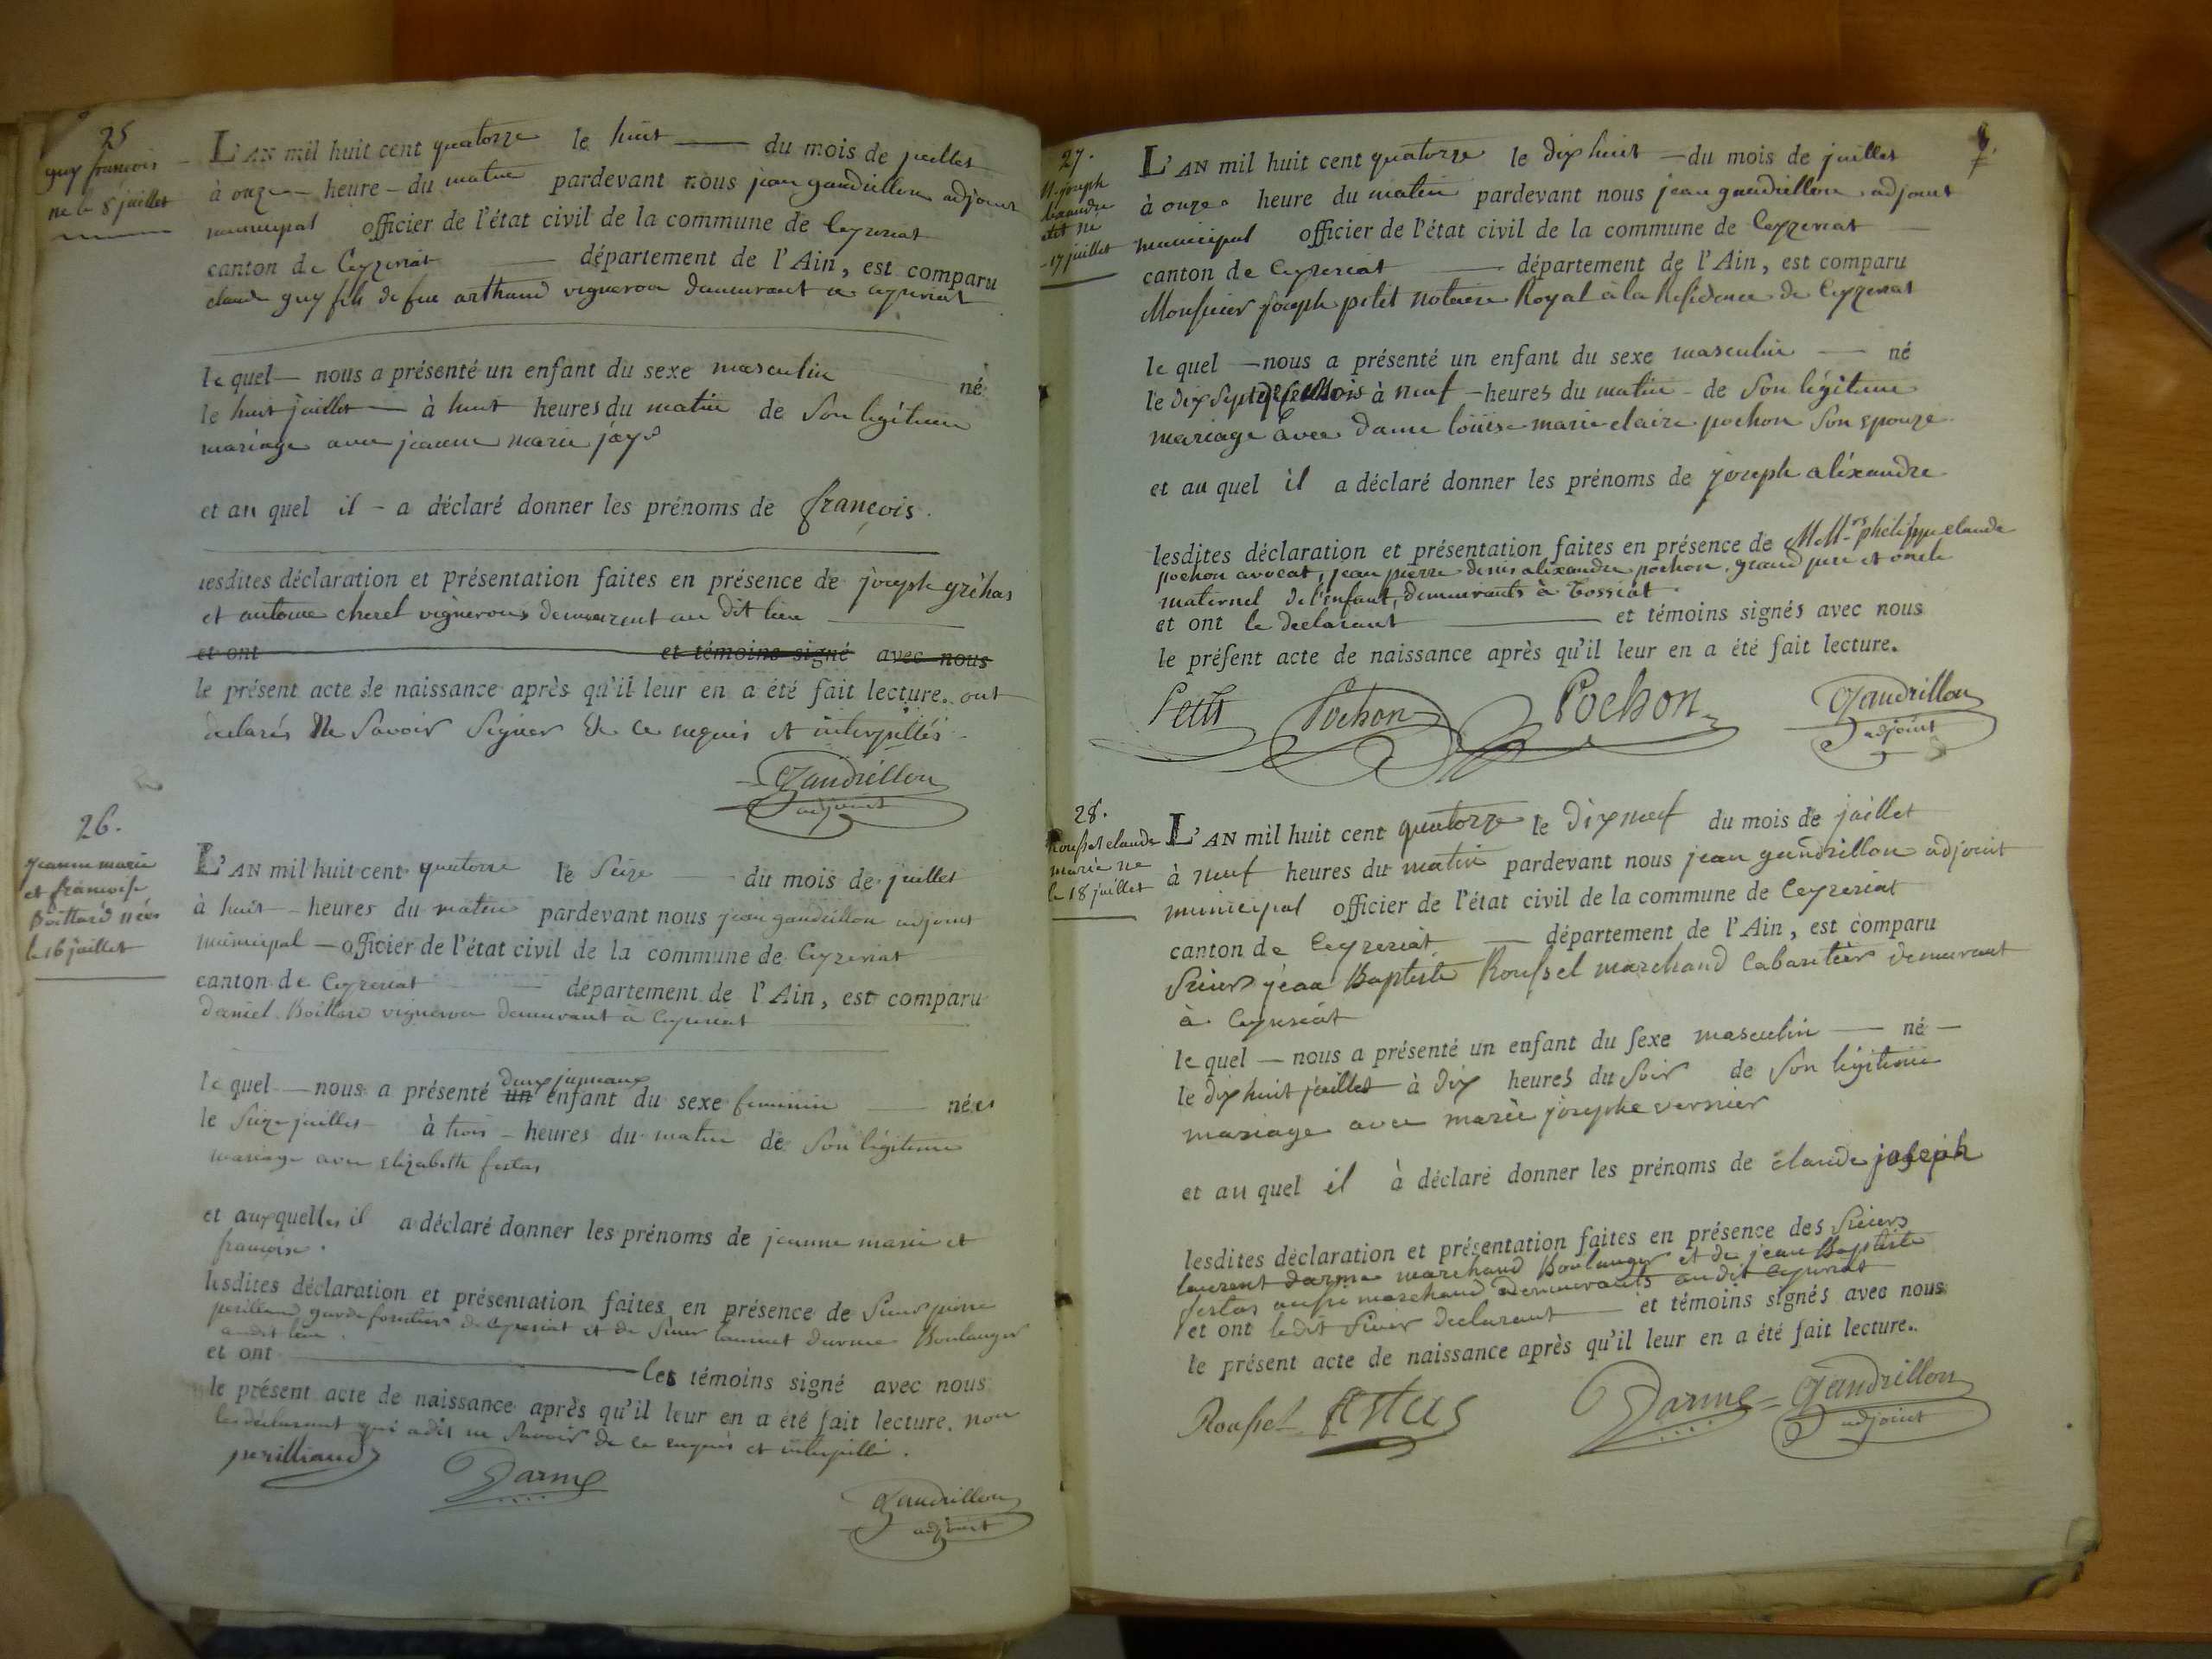 25
guy françois
né le 8 juillet
L'AN mil huit cent quatorze le huit du mois de juillet
à onze heure du matin pardevant nous jean gaudrillon adjoint
municipal officier de l'état civil de la commune de Ceyzeriat
canton de Ceyzeriat département de l'Ain, est comparu
claude guy fils de feu arthaud vigneron demeurant a ceyzeriat
le quel nous a présenté un enfant du sexe masculin né
le huit juillet à huit heures du matin de Son légitime
mariage avec jeanne marie jay
et au quel il a déclaré donner les prénoms de françois.
lesdites déclaration et présentation faites en présence de joseph gréhas
et antoine cheret vignerons demeurent au dit lieu
et ont et témoins signé avec nous
le présent acte de naissance après qu'il leur en a été fait lecture. ont
declarés Ne Savoir Signer de ce requis et interpellés
Gaudrillon
adjoint
26.
jeanne marie
et françoise
Boittard nées
le 16 juillet
L'AN mil huit cent quatorze le Seize du mois de juillet
à huit heures du matin pardevant nous jean gaudrillon adjoint
municipal officier de l'état civil de la commune de Ceyzeriat
canton de Ceyzeriat département de l'Ain, est comparu
Daniel vigneron demeurant a Ceyzeriat
le quel nous a présenté un deux jumeaux enfant du sexe feminin nées
le Seize juillet à trois heures du matin de Son légitime
mariage avec elizabeth festas
et auxquelles il a déclaré donner les prénoms de jeanne marie et
françoise.
lesdites déclaration et présentation faites en présence de Sieur pierre
perilliand garde forestier de Ceyzeriat et de Sieur laurent darme Boulanger
audit lieu.
et ont les témoins signé avec nous
le présent acte de naissance après qu'il leur en a été fait lecture. non
le déclarant qui a dit ne Savoir de ce requis et interpellé.
perilliand
Darme
Gaudrillon
adjoint
27.
joseph
né
17 juillet
L'AN mil huit cent quatorze le dix huit du mois de juillet
à onze heure du matin pardevant nous jean gaudrillon adjoint
municipal officier de l'état civil de la commune de Ceyzeriat
canton de Ceyzeriat département de l'Ain, est comparu
Monsieur joseph petit notaire Royal à la Residence de Ceyzeriat
le quel nous a présenté un enfant du sexe masculin né
le dix Sept à neuf heures du matin de Son légitime
mariage avec dame loüise marie claire pochon Son epouze
et au quel il a déclaré donner les prénoms de joseph aléxandre
lesdites déclaration et présentation faites en présence de MM.rs philippe claude
pochon avocat, jean pierre denis alexandre pochon, grand pere et oncle
maternel de l'enfant, demeurants à Tossiat.
et ont le declarant et témoins signés avec nous
le présent acte de naissance après qu'il leur en a été fait lecture.
Petit Pochon Pochon Gaudrillon
adjoint
28.
Roussel claude
marie né
le 18 juillet
L'AN mil huit cent quatorze le dix neuf du mois de juillet
à neuf heures du matin pardevant nous jean gaudrillon adjoint
municipal officier de l'état civil de la commune de Ceyzeriat
canton de Ceyzeriat département de l'Ain, est comparu
Sieur jean Baptiste Roussel marchand Cabaretier demeurant
à Ceyzeriat
le quel nous a présenté un enfant du sexe masculin né
le dix huit juillet à dix heures du Soir de Son légitime
mariage avec marie josephe vernier
et au quel il à déclaré donner les prénoms de claude joseph
lesdites déclaration et présentation faites en présence des Sieurs
laurent darme marchand Boulanger et de jean Baptiste
festas aussi marchand demeurants au dit Ceyzeriat
et ont ledit Sieur declarant et témoins signés avec nous
le présent acte de naissance après qu'il leur en a été fait lecture.
Roussel festas Darme Gaudrillon
adjoint